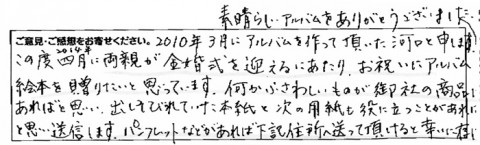 素晴らしいアルバムをありがとうございました。
ご意見・ご感想をお寄せください。2010年3月にアルバムを作って頂いた河口と申します
この度2014年四月に両親が金婚式を迎えるにあたり、お祝いにアルバム
絵本を贈りたいと思っています。何かふさわしいものが御社の商品に
あればと思い、出しそびれていた本紙と次の用紙も役に立つことがあれば
と思い送信します。パンフレットなどがあれば下記住所へ送って頂けると幸いに存